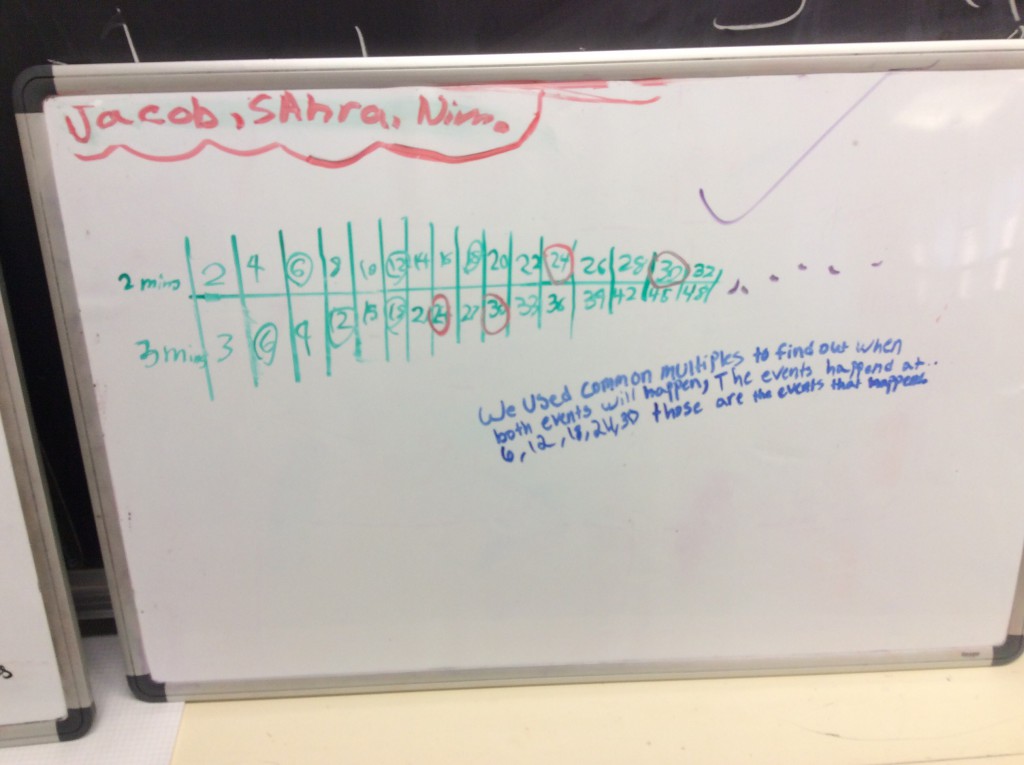 Jacob, SAhra, Nim.
2 mins 2 4 6 8 10 12 14 16 18 20 22 24 26 28 30 32
3 mins 3 6 9 12 15 18 21 24 27 30 33 36 39 42 45 48
We Used common multiples to find out when
both events will happen, The events happend at..
6, 12, 18, 24, 30 those are the events that happens